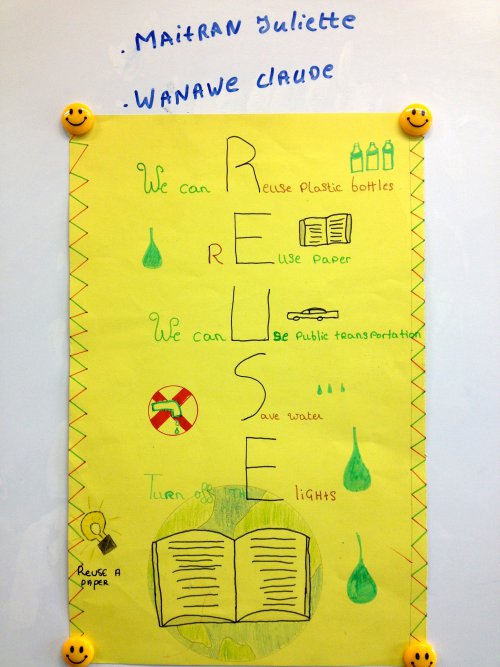 . MAitRAN Juliette
. WANAWE CLAUDE
We can Reuse Plastic bottles
REUse PaPer
We can USe Public transportation
Save water
Turn off THE liGHTS
ReUSE A
PAPER